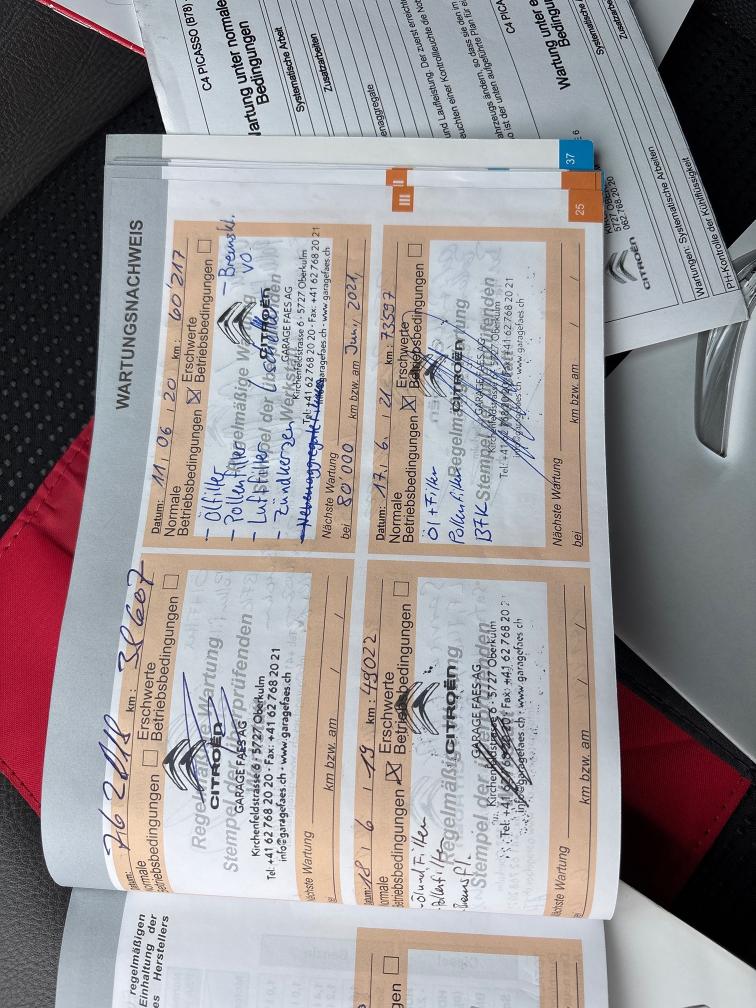 WARTUNGSNACHWEIS
Datum:
km: 38607
Normale Betriebsbedingungen
Erschwerte Betriebsbedingungen
Regelmäßige Wartung
Stempel der überprüfenden
CITROËN
GARAGE FAES AG
Kirchenfeldstrasse 6 · 5727 Oberkulm
Tel: +41 62 768 20 20 · Fax: +41 62 768 20 21
info@garagefaes.ch · www.garagefaes.ch
Nächste Wartung
km bzw. am / /
Datum: 11/06/20 km: 60'217
Normale Betriebsbedingungen
Erschwerte Betriebsbedingungen
- Ölfilter
- Pollenfilter
- Luftfilter
- Zündkerzen
- Bremsfl.
VO
Regelmäßige Wartung
Stempel der überprüfenden Werkstatt
CITROËN
GARAGE FAES AG
Kirchenfeldstrasse 6 · 5727 Oberkulm
Tel: +41 62 768 20 20 · Fax: +41 62 768 20 21
info@garagefaes.ch · www.garagefaes.ch
Nächste Wartung
bei 80'000 km bzw. am Juni, 2021
Datum: 18/6/19 km: 49022
Normale Betriebsbedingungen
Erschwerte Betriebsbedingungen
- Öl und Filter
- Pollenfilter
Bremsfl.
Regelmäßige Wartung
Stempel der überprüfenden
CITROËN
GARAGE FAES AG
Kirchenfeldstrasse 6 · 5727 Oberkulm
Tel: +41 62 768 20 20 · Fax: +41 62 768 20 21
info@garagefaes.ch · www.garagefaes.ch
Nächste Wartung
km bzw. am / /
Datum: 17/6/21 km: 73597
Normale Betriebsbedingungen
Erschwerte Betriebsbedingungen
Öl + Filter
Pollenfilter
BFK
Regelmäßige Wartung
Stempel der überprüfenden
CITROËN
GARAGE FAES AG
Kirchenfeldstrasse 6 · 5727 Oberkulm
Tel: +41 62 768 20 20 · Fax: +41 62 768 20 21
info@garagefaes.ch · www.garagefaes.ch
Nächste Wartung
bei km bzw. am / /
III
I
25
37
regelmäßigen
Einhaltung der
es Herstellers
C4 PICASSO (B78)
Wartung unter normalen
Bedingungen
Systematische Arbeit
Zusatzarbeiten
C4 PICA
Wartung unter e
Bedingung
Systematische Arbeit
Zusatzarbeit
5727 OBER
062.768.20.20
CITROËN
Wartungen: Systematische Arbeiten
PH-Kontrolle der Kühlflüssigkeit